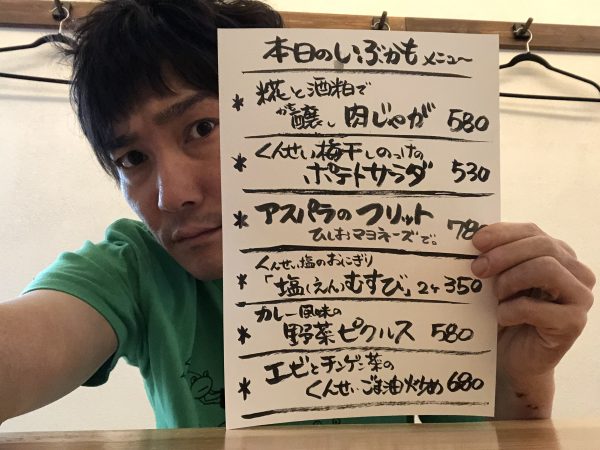 本日のいぶかもメニュー
* 糀と酒粕で
かもし
醸し 肉じゃが 580
* くんせい梅干しのっけの
ポテトサラダ 530
* アスパラのフリット 780
ひしおマヨネーズで。
くんせい塩のおにぎり
* 「塩(えん)むすび」2ヶ 350
カレー風味の
* 野菜ピクルス 580
* エビとチンゲン菜の
くんせいごま油炒め 680